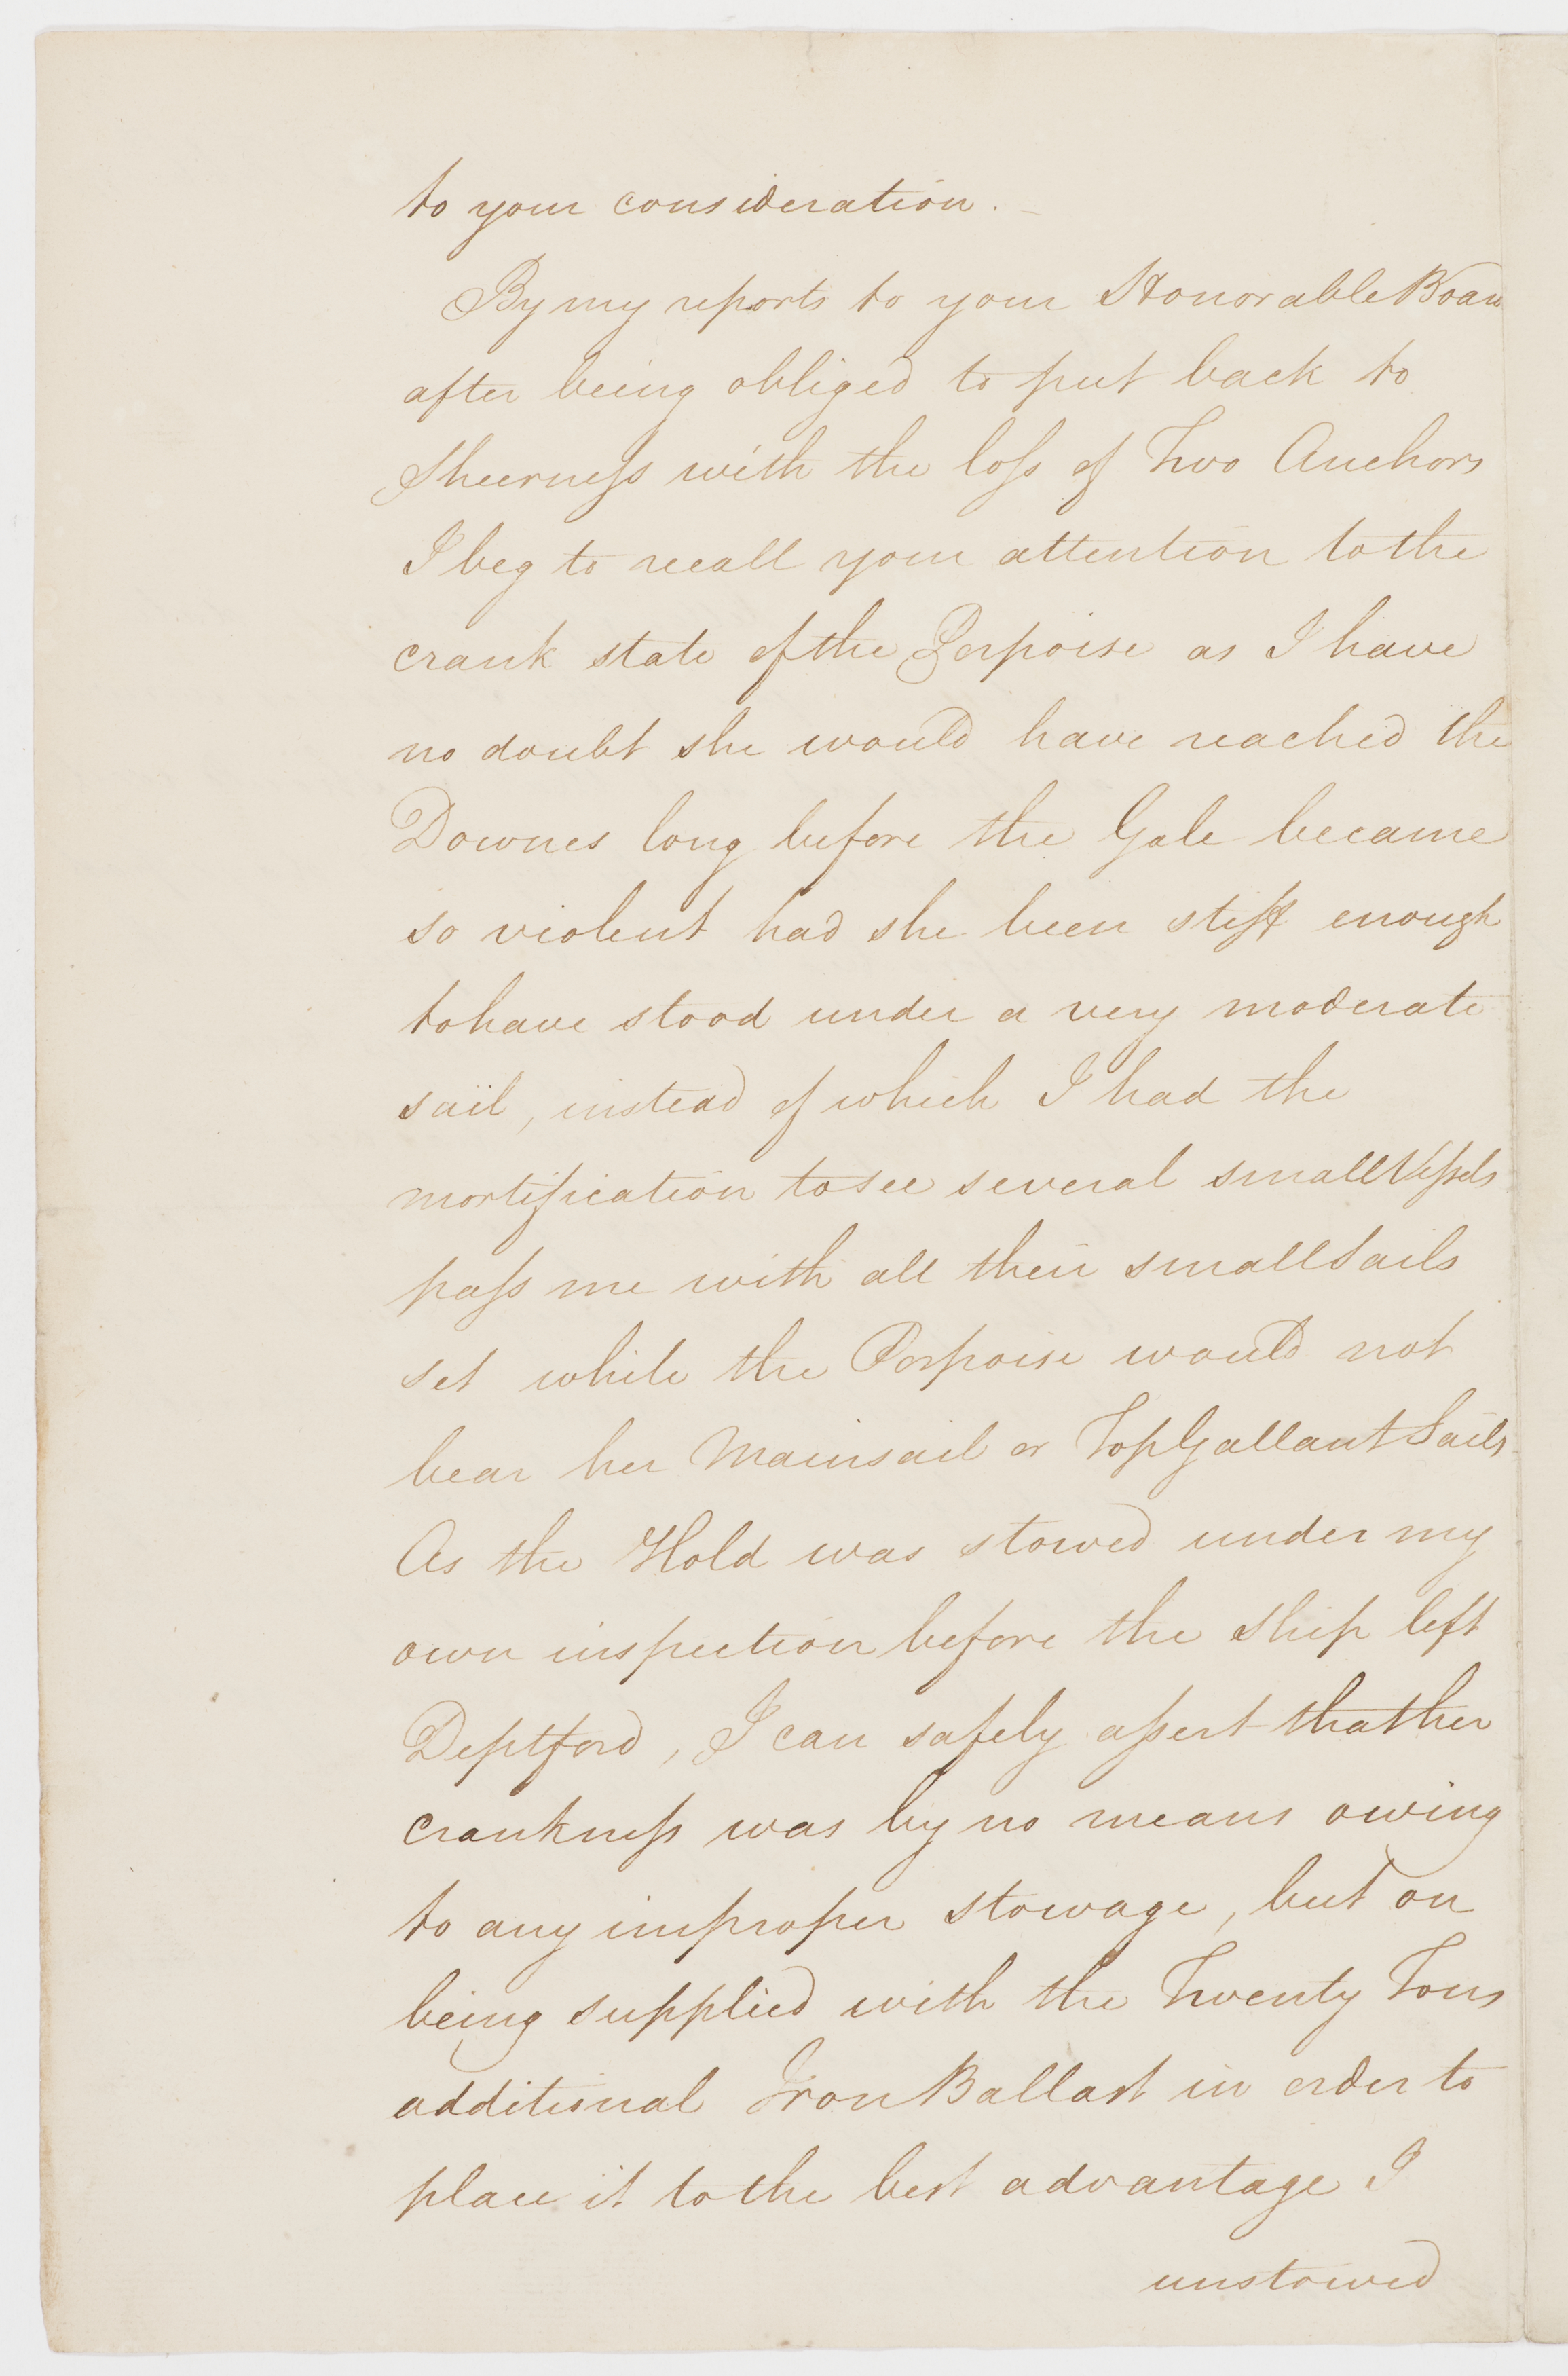 to your consideration. –
By my reports to your Honorable Board
after being obliged to put back to
Sheerness with the loss of Two Anchors
I beg to recall your attention to the
crank state of the Porpoise as I have
no doubt she would have reached the
Downes long before the Gale became
so violent had she been stiff enough
to have stood under a very moderate
sail, instead of which I had the
mortification to see several small Vessels
pass me with all their small Sails
set while the Porpoise would not
bear her Mainsail or Top Gallant Sails
As the Hold was stowed under my
own inspection before the Ship left
Deptford, I can safely assert that her
crankness was by no means owing
to any improper stowage, but on
being supplied with the Twenty Tons
additional Iron Ballast in order to
place it to the best advantage I
unstowed